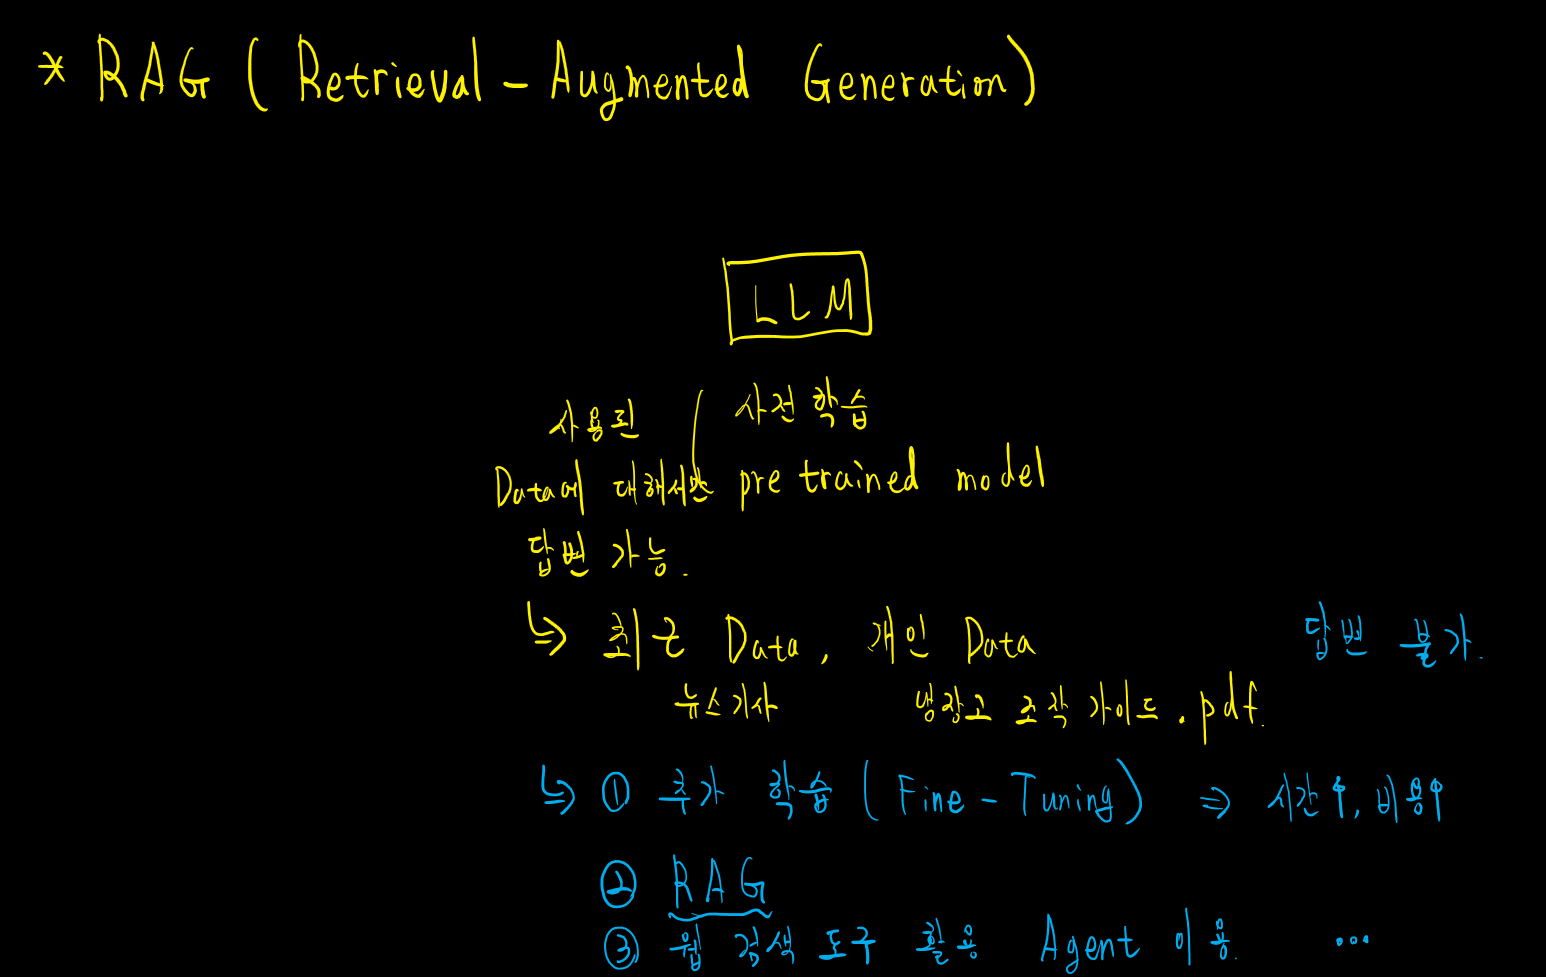 * RAG ( Retrieval - Augmented Generation )
LLM
사전 학습
pre trained model
사용된
Data에 대해서만
답변 가능.
↳ 최근 Data, 개인 Data 답변 불가.
뉴스기사 냉장고 조작 가이드.pdf.
↳ ① 추가 학습 ( Fine - Tuning ) ⇒ 시간↑, 비용↑
② RAG
③ 웹 검색 도구 활용 Agent 이용. ...